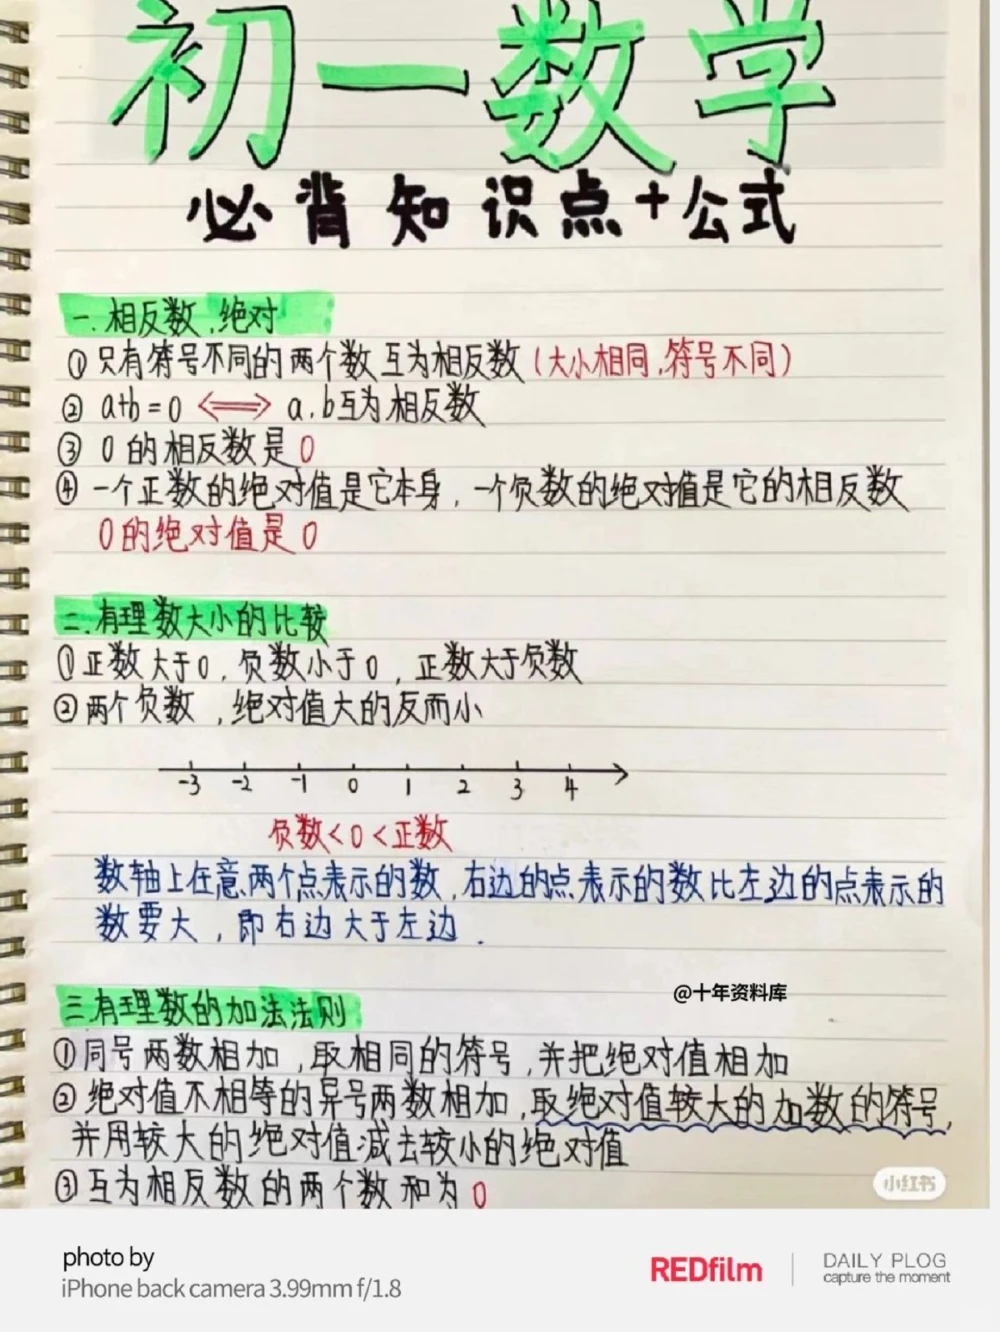 初一数学
必背知识点+公式
一.相反数,绝对
①只有符号不同的两个数互为相反数(大小相同,符号不同)
②a+b=0 ⟺ a.b互为相反数
③0的相反数是0
④一个正数的绝对值是它本身,一个负数的绝对值是它的相反数
0的绝对值是0
二.有理数大小的比较
①正数大于0,负数小于0,正数大于负数
②两个负数,绝对值大的反而小
-3 -2 -1 0 1 2 3 4
负数<0<正数
数轴上任意两个点表示的数,右边的点表示的数比左边的点表示的
数要大,即右边大于左边.
@十年资料库
三有理数的加法法则
①同号两数相加,取相同的符号,并把绝对值相加
②绝对值不相等的异号两数相加,取绝对值较大的加数的符号,
并用较大的绝对值减去较小的绝对值
③互为相反数的两个数和为0
小红书
photo by
iPhone back camera 3.99mm f/1.8
REDfilm
DAILY PLOG
capture the moment